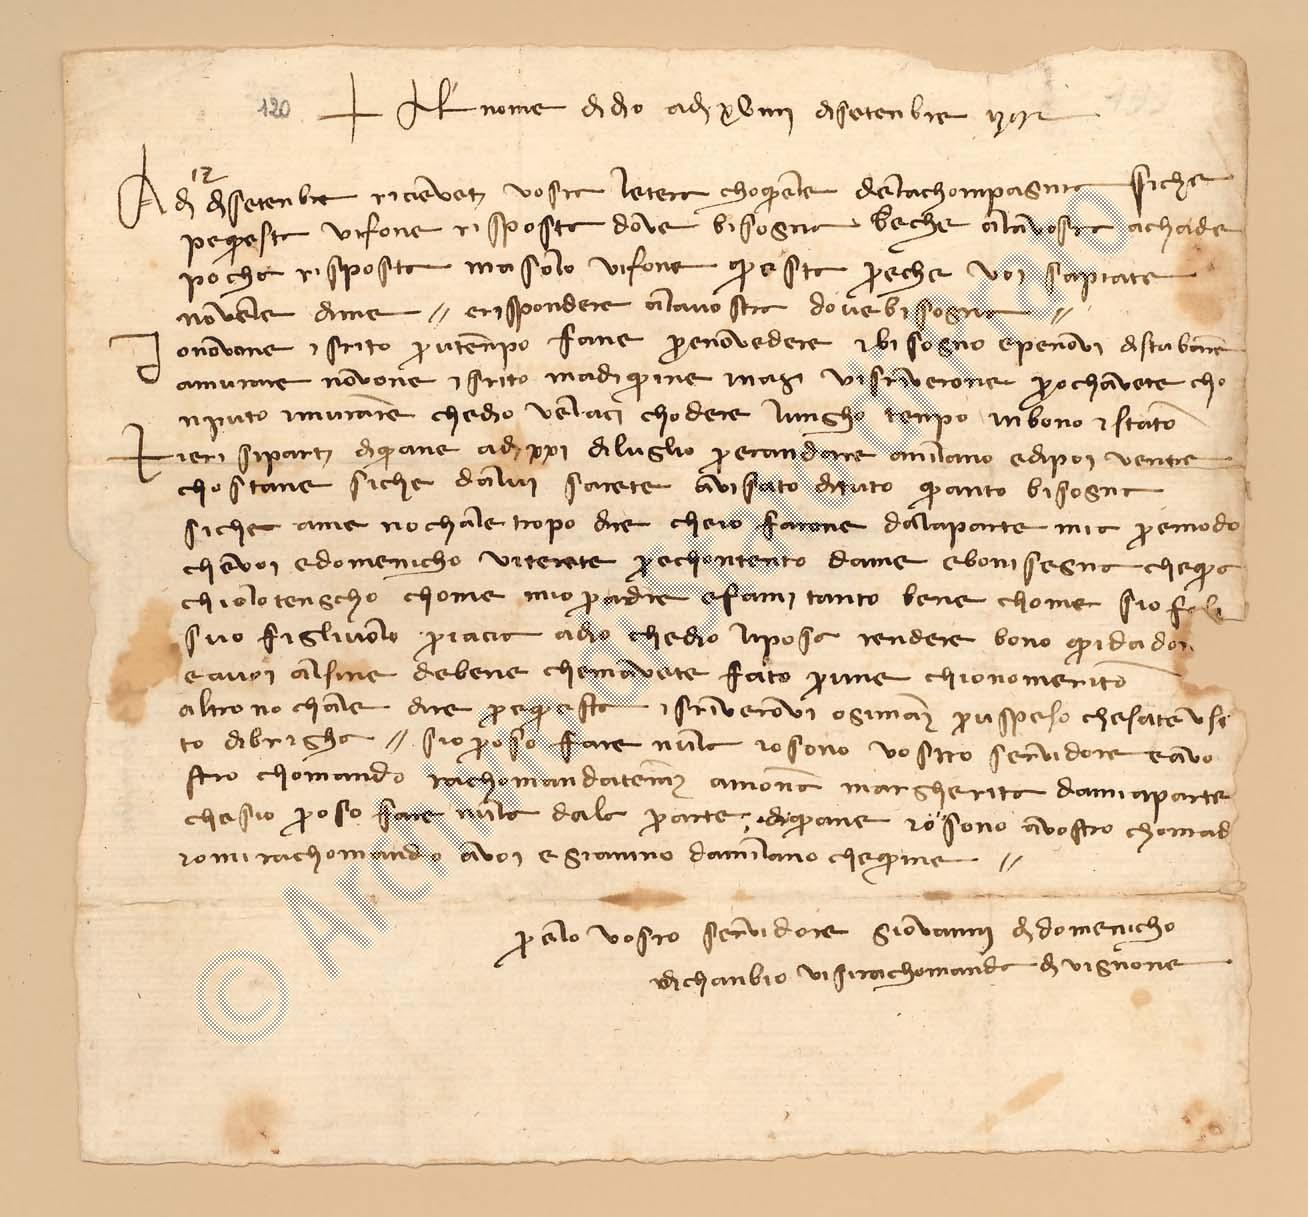 120
+ Al nome di dio adj xviiij disetenbre 1392
Adj 12 disetenbre ricievetj vostra letera choquele delachompagnia siche
pequesta vifone risposta dove bisogna beche alavostra achade
pocha risposta masolo vifone questa perche voi sapiate
novele dime // erispondere alavostra dovebisogna //
Jonovone iscrito piutenpo fane penovedere ilbisogno epenovi disturbare
amurare novone iscrito madiquine inazi viscriverone pochavete cho
nputo imurare chedio velaci chodere lungho tenpo inbono istato
tieri siparti diquane adj xxi diluglio perandare amilano edipoi venire
chostane siche dalui sarete avisato dituto quanto bisogna
siche ame nochale tropo dire cheio farone dalaparte mia pemodo
chevoi edomenicho viterete pechontento dame ebonisegna cheqa
chiolotengho chome mio padre efami tanto bene chome sio fosi
suo figliuolo piacia adio chedio liposa rendere bono quidadon
eavoi alsine debene chemavete fato pime chionomerito
altro nochale dire pequesta iscriverovi ogimai piuspeso chesatevisi
to dibrigha // sioposo fare nula io sono vostro servidore eavo
stro chomando rachomandatemi amona margherita damiaparte
chesio poso fare nula dala parte diquane io sono avostro chomad
romi rachomando avoi egianino damilano chequine //
pelo vostro servidore giovannj di domenicho
dichanbio visirachomanda di vignone
© Archivio di Stato di Prato